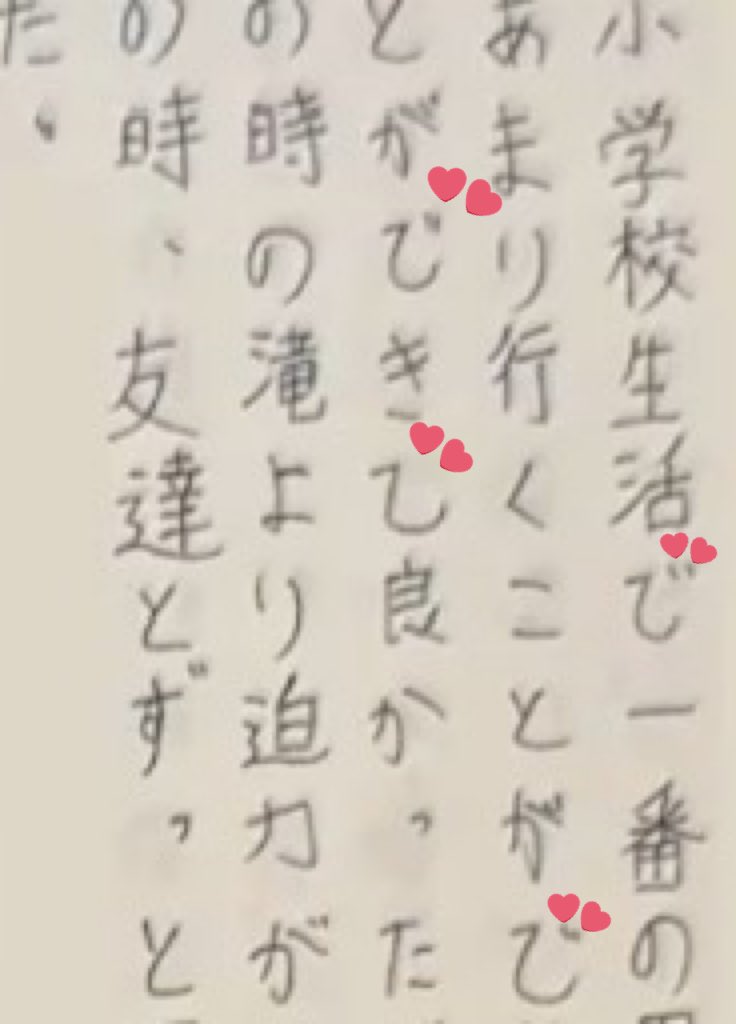 小学校生活で一番の
あまり行くことがで
とができて良かった
の時の滝より迫力が
の時、友達とずっと
た。